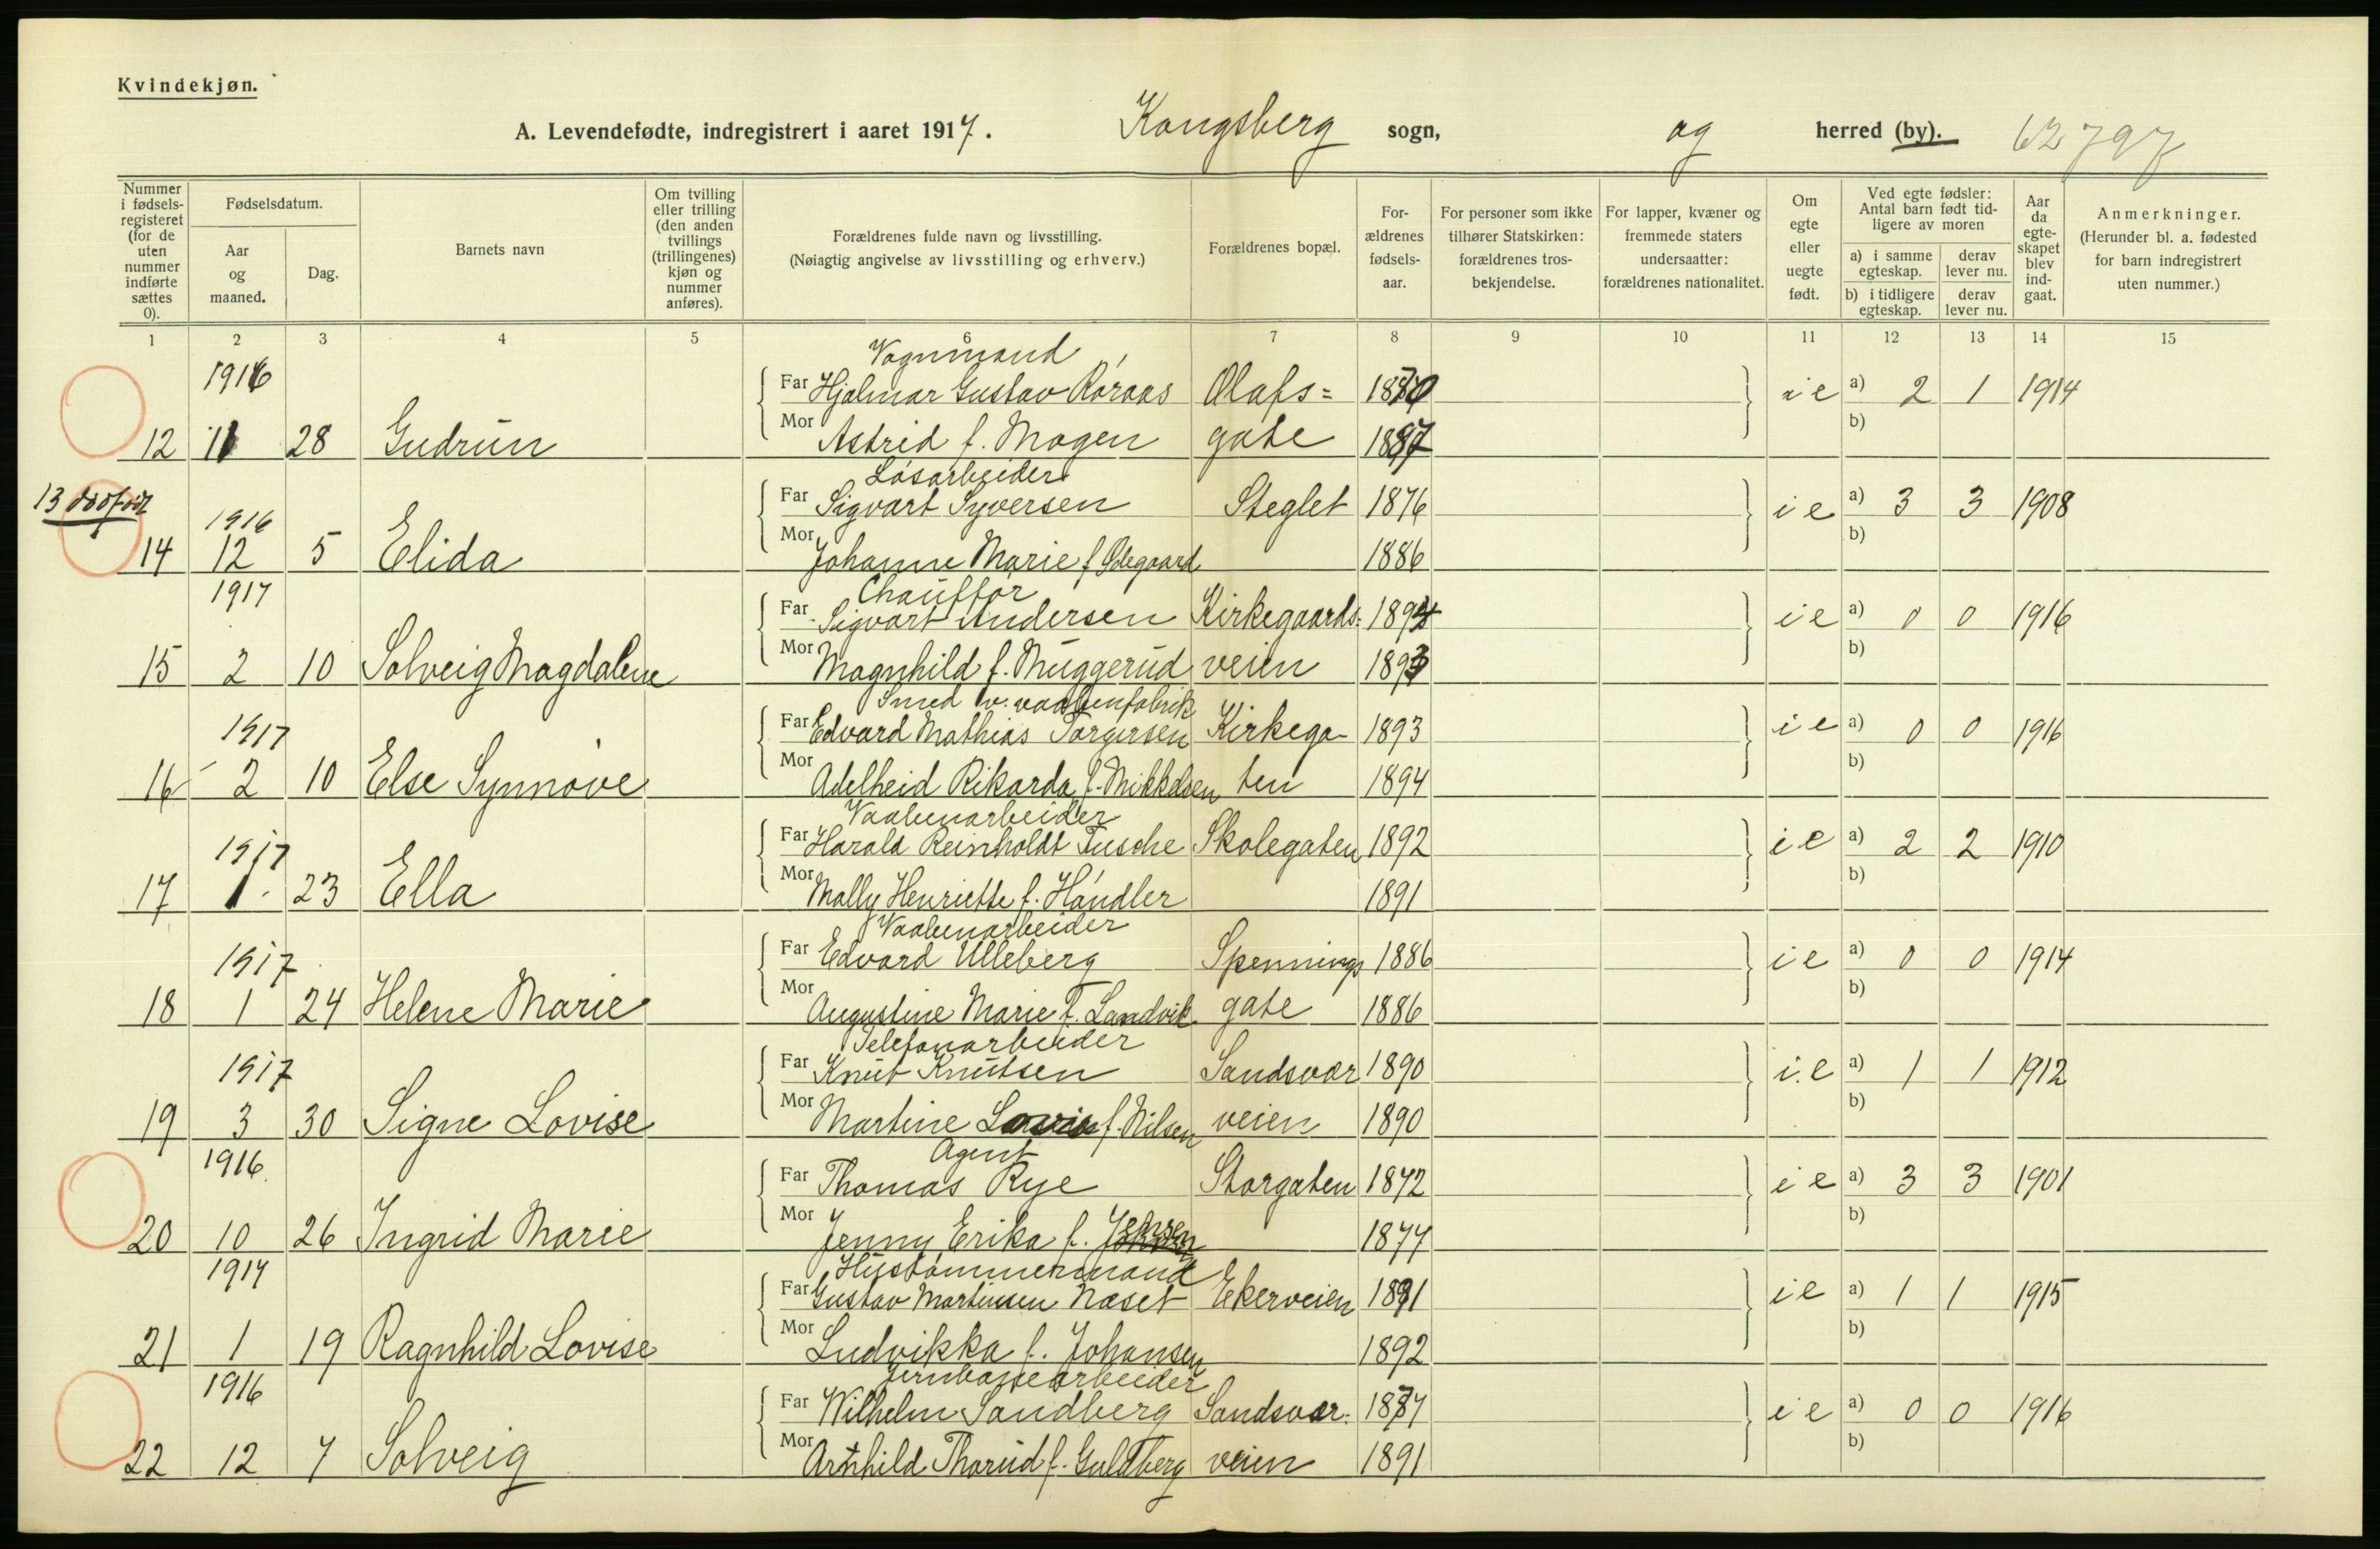 Kvindekjøn.
A. Levendefødte, indregistrert i aaret 1917. Kongsberg sogn, og herred (by). 62797
Nummer i fødselsregisteret (for de uten nummer indførte sættes 0).
Fødselsdatum.
Aar og maaned.
Dag.
Barnets navn
Om tvilling eller trilling (den anden tvillings (trillingenes) kjøn og nummer anføres).
Forældrenes fulde navn og livsstilling.
(Nøiagtig angivelse av livsstilling og erhverv.)
Forældrenes bopæl.
Forældrenes fødselsaar.
For personer som ikke tilhører Statskirken: forældrenes trosbekjendelse.
For lapper, kvæner og fremmede staters undersaatter: forældrenes nationalitet.
Om egte eller uegte født.
Ved egte fødsler: Antal barn født tidligere av moren
a) i samme egteskap.
derav lever nu.
b) i tidligere egteskap.
derav lever nu.
Aar da egteskapet blev indgaat.
Anmerkninger.
(Herunder bl. a. fødested for barn indregistrert uten nummer.)
1 2 3 4 5 6 7 8 9 10 11 12 13 14 15
Vognmand
1916 Far Hjalmar Gustav Róraas Olafs= 1870 ie a) 2 1 1914
12 11 28 Gudrun Mor Astrid f. Mogen gate 1887 b)
Løsarbeider
13 dødfødt
1916 Far Sigvart Syversen Steglet 1876 ie a) 3 3 1908
14 12 5 Elida Mor Johanne Marie f Ødegaard 1886 b)
Chauffør
1917 Far Sigvart Andersen Kirkegaards- 1894 ie a) 0 0 1916
15 2 10 Solveig Magdalene Mor Magnhild f. Muggerud veien 1893 b)
Smed v. vaabenfabrik
1917 Far Edvard Mathias Torgersen Kirkega- 1893 ie a) 0 0 1916
16 2 10 Else Synnøve Mor Adelheid Rikarda f. Mikkelsen ten 1894 b)
Vaabenarbeider
1917 Far Harald Reinholdt Tusche Skolegaten 1892 ie a) 2 2 1910
17 1 23 Ella Mor Molly Henriette f. Handler 1891 b)
Vaabenarbeider
1917 Far Edvard Ulleberg Spennings 1886 ie a) 0 0 1914
18 1 24 Helene Marie Mor Augustine Marie f. Landvik gate 1886 b)
Telefonarbeider
1917 Far Knut Knutsen Sandsvær 1890 i.e a) 1 1 1912
19 3 30 Signe Lovise Mor Martine f. Nilsen veien 1890 b)
Agent
1916 Far Thomas Rye Storgaten 1872 ie a) 3 3 1901
20 10 26 Ingrid Marie Mor Jenny Erika f. Jensen 1877 b)
Hustømmermand
1917 Far Gustav Martinsen Næset Ekerveien 1891 ie a) 1 1 1915
21 1 19 Ragnhild Lovise Mor Ludvikka f. Johansen 1892 b)
Jernbanearbeider
1916 Far Wilhelm Sandberg Sandsvær- ie a) 0 0 1916
22 12 7 Solveig Mor Thorud f. Guldberg veien 1891 b)